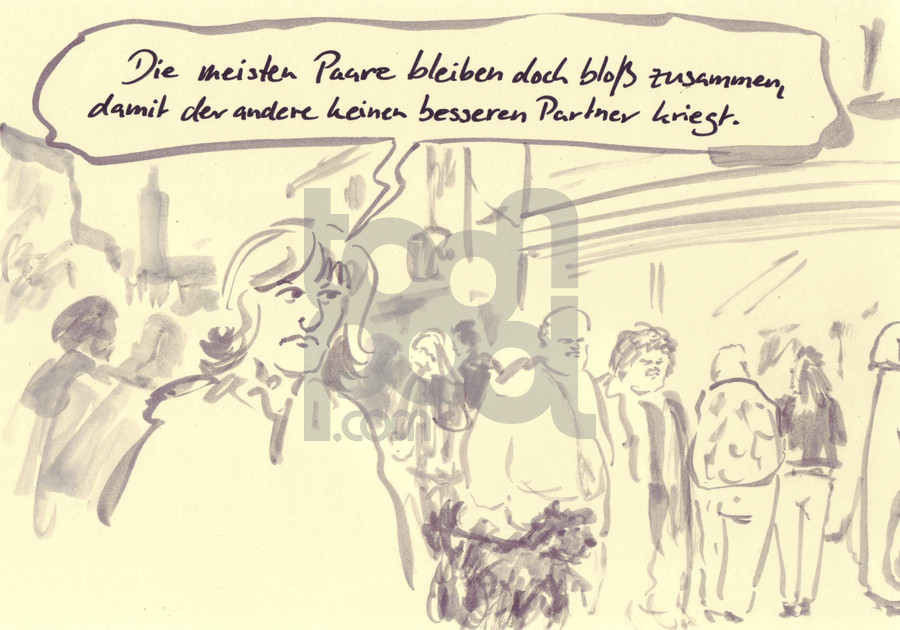 Die meisten Paare bleiben doch bloß zusammen,
damit der andere keinen besseren Partner kriegt.
toonpool
.com